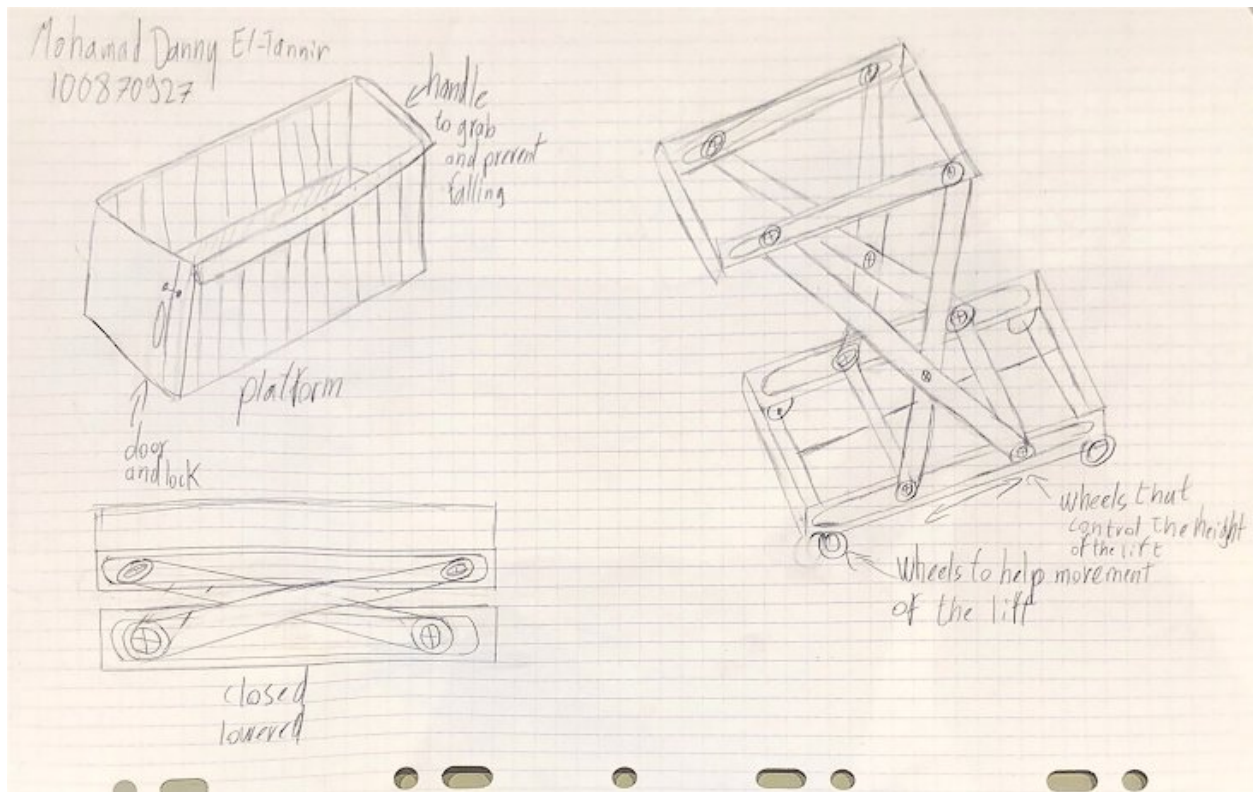 Mohamad Danny El-Tannir
100870927
handle
to grab
and prevent
falling
platform
door
and lock
closed
lowered
wheels that
control the height
of the lift
wheels to help movement
of the lift